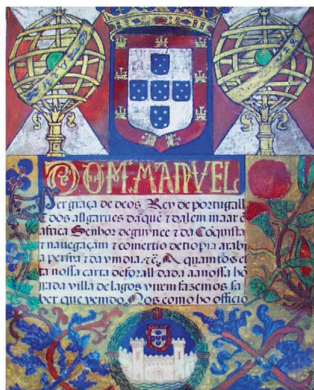 DOM MANVEL
Per graça de deos Rey de portugall
E dos allgarues daque z dalem maar e
africa Senhor de guinee z da Cõquista
z nauegaçam z comertio detiopia arabi
a persia z da ymdia zc̃ A quantos es
ta nossa carta de forall dada aa nossa
villa de lagos virem fazemos sa
ber que vemdo Nos como ho officio